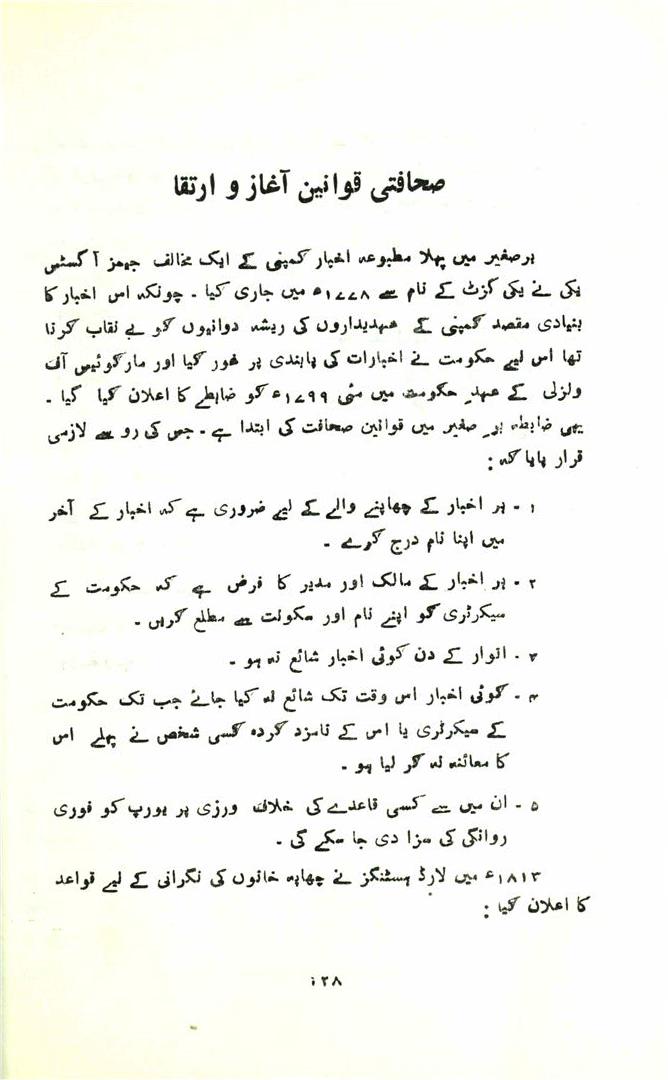 صحافتی قوانین آغاز و ارتقا
برصغیر میں پہلا مطبوعہ اخبار کمپنی کے ایک مخالف جیمز آگسٹس
ہکی نے ہکی گزٹ کے نام سے ۱۷۷۸ء میں جاری کیا ۔ چونکہ اس اخبار کا
بنیادی مقصد کمپنی کے عہدیداروں کی ریشہ دوانیوں کو بے نقاب کرنا
تھا اس لیے حکومت نے اخبارات کی پابندی پر غور کیا اور مارکوئیس آف
ولزلی کے عہدِ حکومت میں مئی ۱۷۹۹ء کو ضابطے کا اعلان کیا گیا ۔
یہی ضابطہ برِ صغیر میں قوانین صحافت کی ابتدا ہے ۔ جس کی رو سے لازمی
قرار پایا کہ :
۱ ۔ ہر اخبار کے چھاپنے والے کے لیے ضروری ہے کہ اخبار کے آخر
میں اپنا نام درج کرے ۔
۲ ۔ ہر اخبار کے مالک اور مدیر کا فرض ہے کہ حکومت کے
سیکرٹری کو اپنے نام اور سکونت سے مطلع کریں ۔
۳ ۔ اتوار کے دن کوئی اخبار شائع نہ ہو ۔
۴ ۔ کوئی اخبار اس وقت تک شائع نہ کیا جائے جب تک حکومت
کے سیکرٹری یا اس کے نامزد کردہ کسی شخص نے پہلے اس
کا معائنہ نہ کر لیا ہو ۔
۵ ۔ ان میں سے کسی قاعدے کی خلاف ورزی پر یورپ کو فوری
روانگی کی سزا دی جا سکے گی ۔
۱۸۱۳ء میں لارڈ ہسٹنگز نے چھاپہ خانوں کی نگرانی کے لیے قواعد
کا اعلان کیا :
۱۲۸